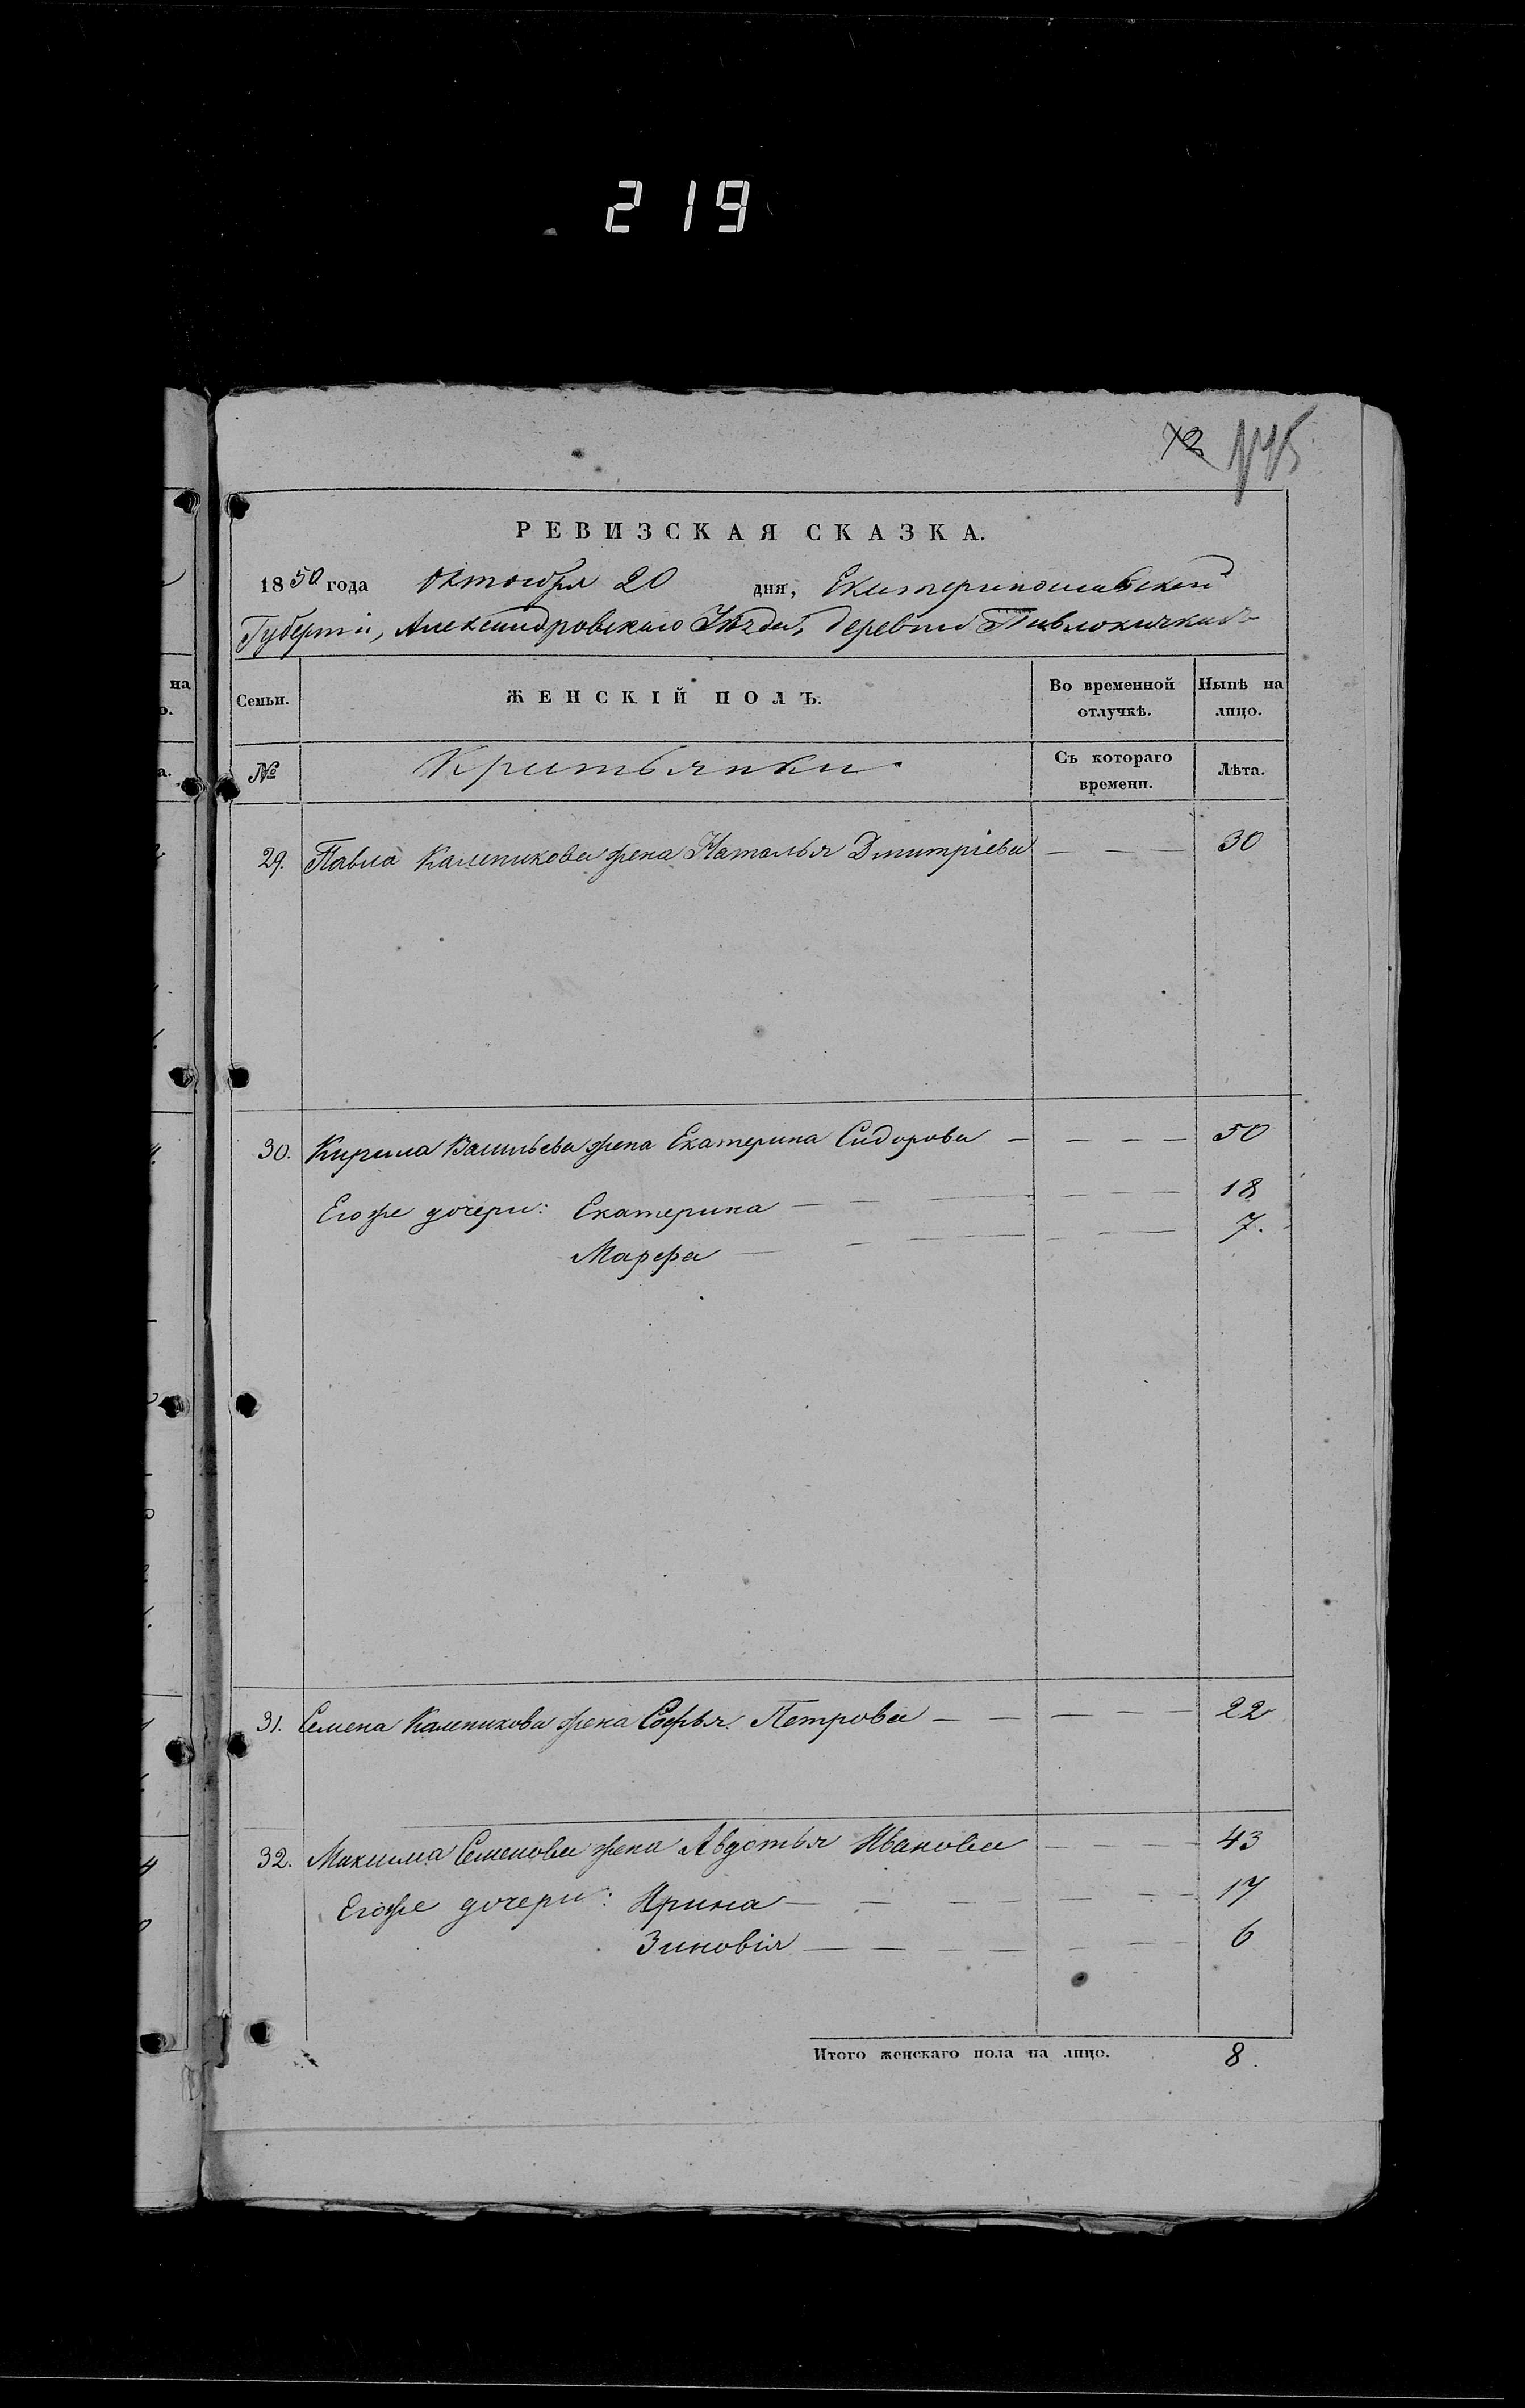 219
72
РЕВИЗСКАЯ СКАЗКА.
1850 года Октября 20 дня, Екатеринославской
Губерніи, Александровскаго Уѣзда, деревни Павлокичкаса
на
Семьи.
ЖЕНСКІЙ ПОЛЪ.
Во временной отлучкѣ.
Нынѣ на лицо.
№
Крестьянки
Съ котораго времени.
Лѣта.
29. Павла Калешикова жена Наталья Дмитріева — — — 30
30. Кирила Васильева жена Екатерина Сидорова — — — — 50
Его же дочери: Екатерина — — — — — — 18
Марфа — — — — — — 7.
31. Семена Калешикова жена Софья Петрова — — — — — 22
32. Максима Семенова жена Авдотья Иванова — — — 43
Егоже дочери: Ирина — — — — — — 17
Зиновія — — — — — — 6
Итого женскаго пола на лицо. 8.